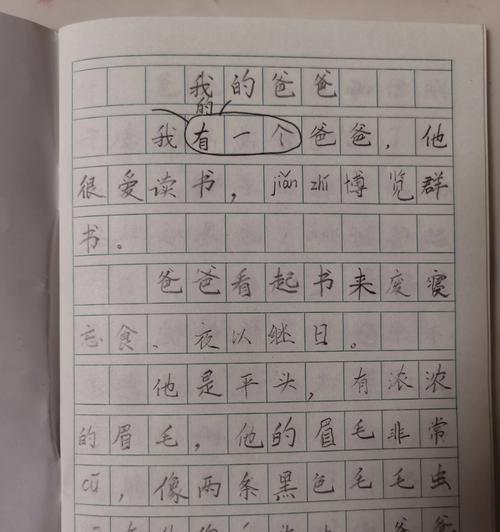 我的爸爸
的
我有一个爸爸，他
很爱读书，jiǎn zhí博览群
书。
爸爸看起书来度寝
忘食、夜以继日。
他是平头，有浓浓
的眉毛，他的眉毛非常
cū，像两条黑色毛毛虫
爸爸